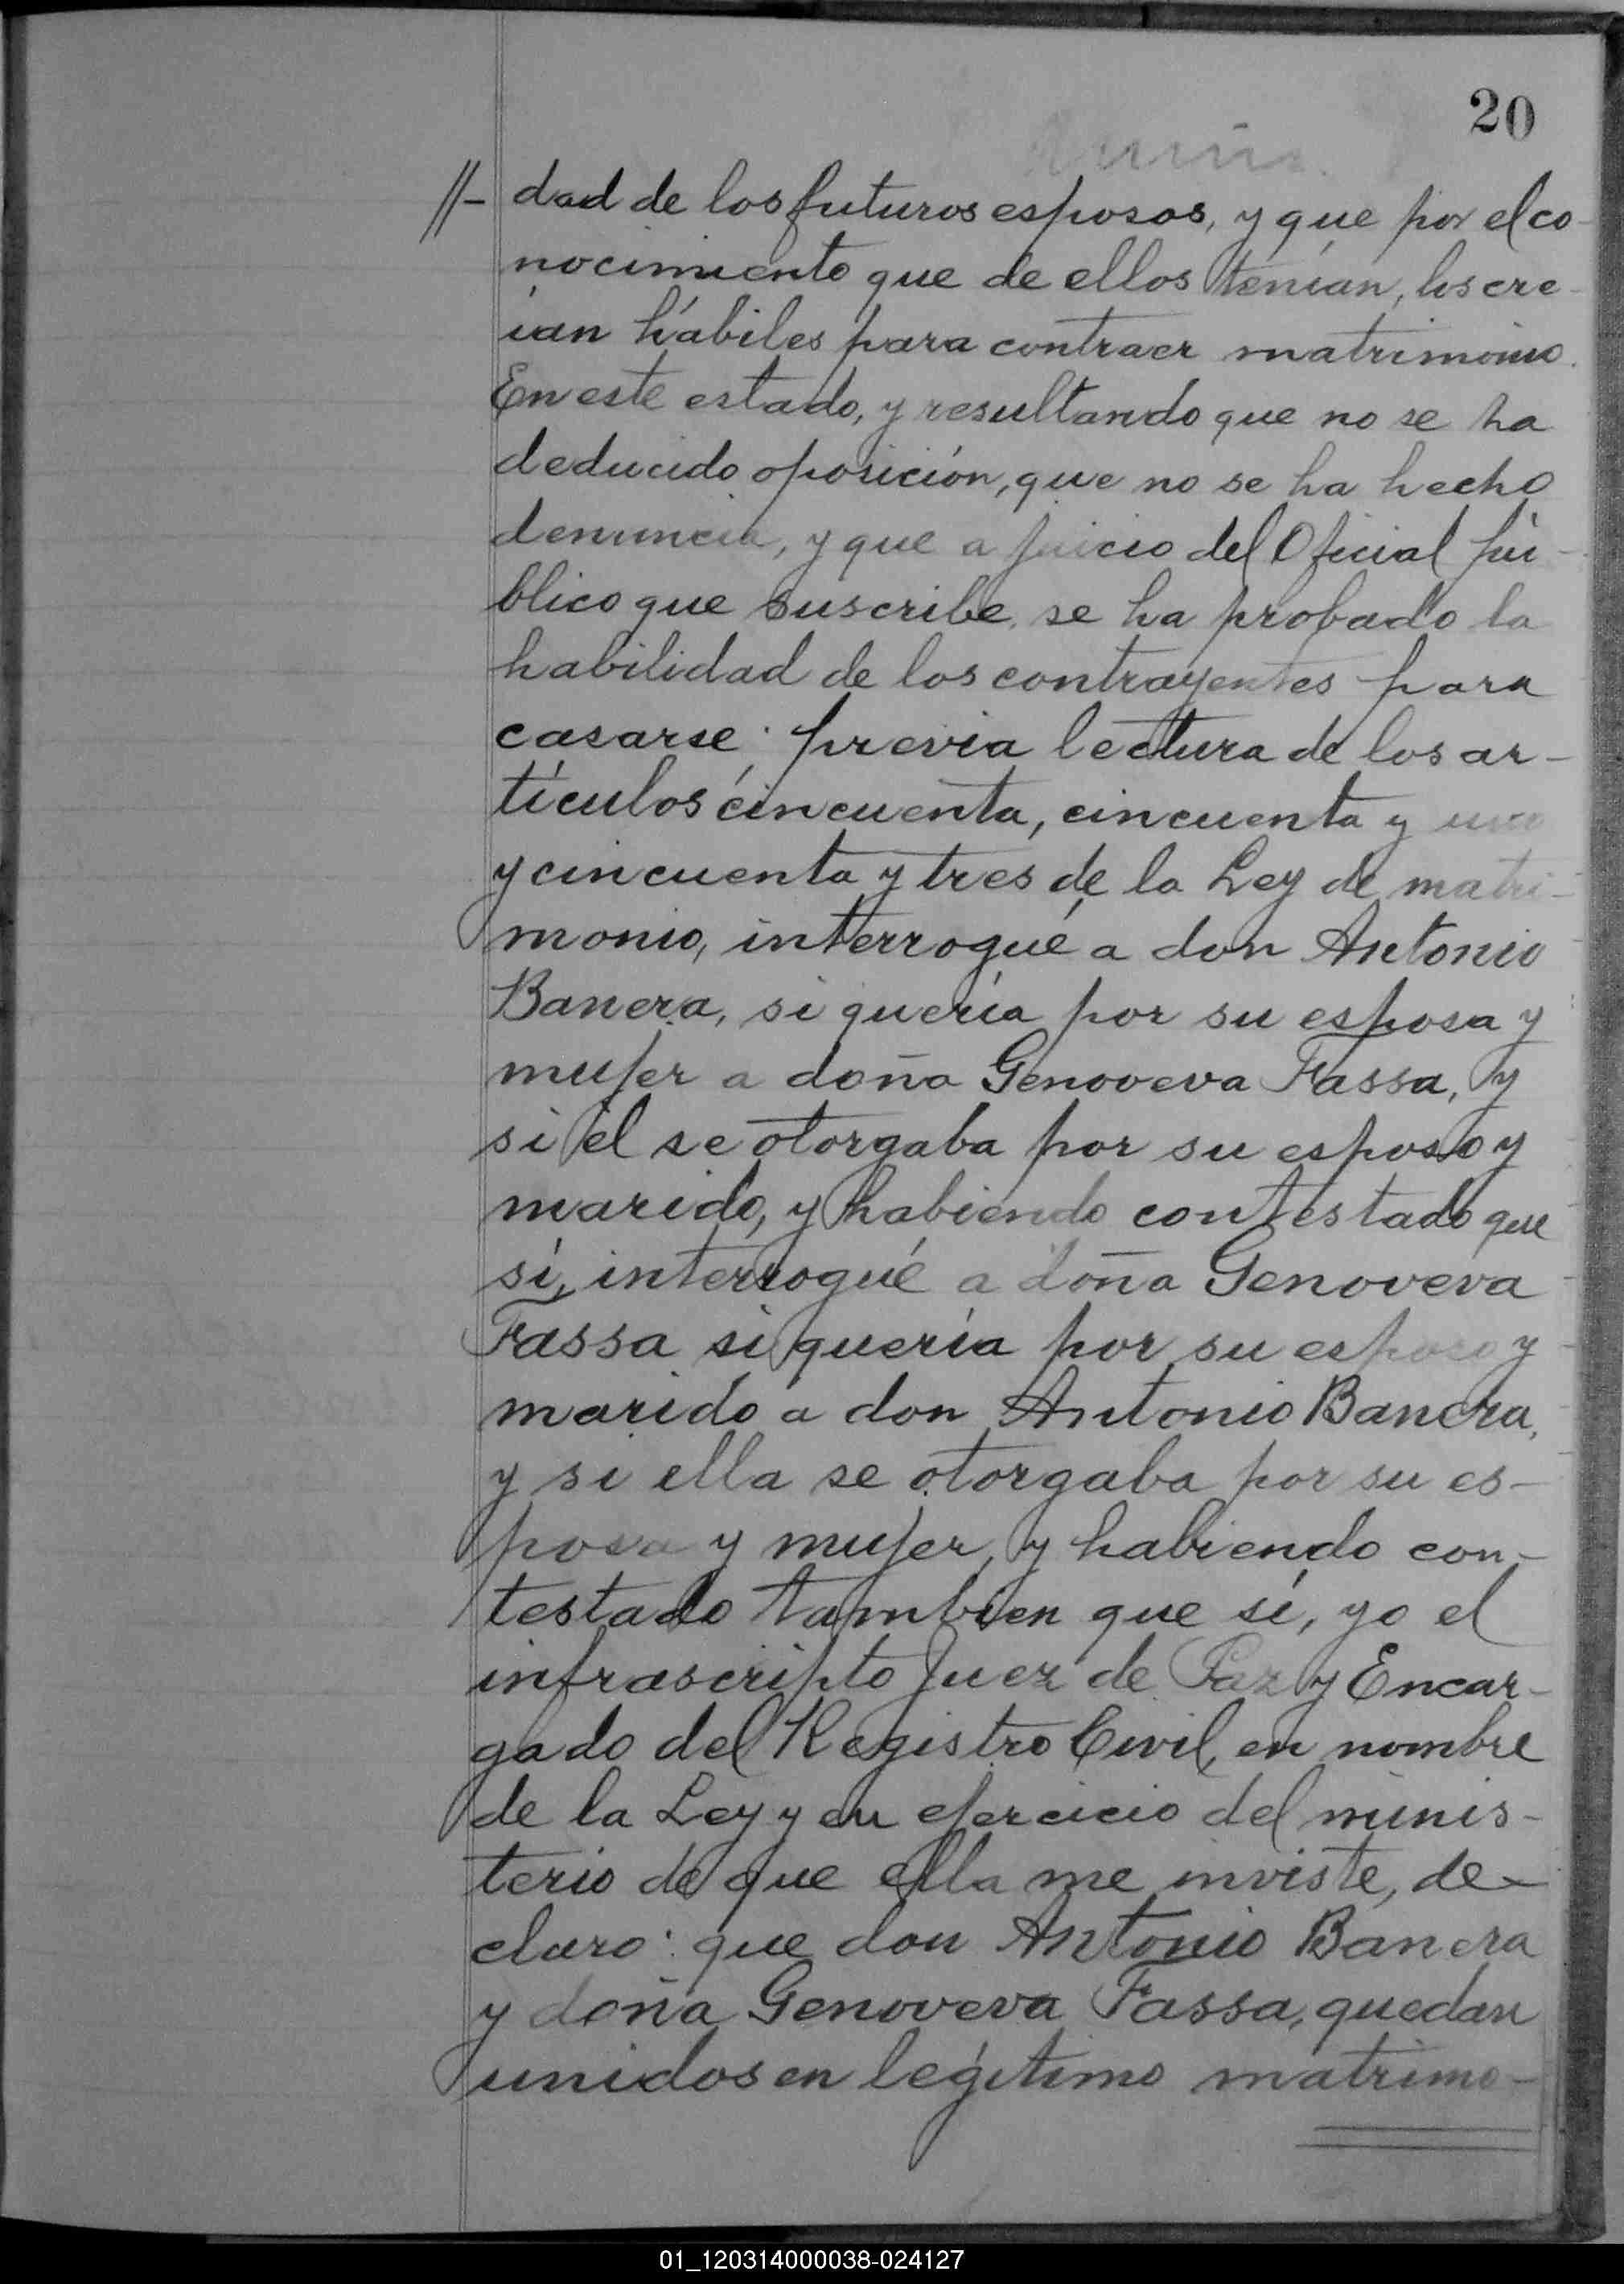 20
//- dad de los futuros esposos, y que por el co-
nocimiento que de ellos tenían, los cre-
ian hábiles para contraer matrimonio.
En este estado, y resultando que no se ha
deducido oposición, que no se ha hecho
denuncia, y que a juicio del Oficial pú-
blico que suscribe, se ha probado la
habilidad de los contrayentes para
casarse; previa lectura de los ar-
tículos cincuenta, cincuenta y uno
y cincuenta y tres de la Ley de matri-
monio, interrogué a don Antonio
Banera, si quería por su esposa y
mujer a doña Genoveva Fassa, y
si él se otorgaba por su esposo y
marido, y habiendo contestado que
sí, interrogué a doña Genoveva
Fassa si quería por su esposo y
marido a don Antonio Banera,
y si ella se otorgaba por su es-
posa y mujer, y habiendo con-
testado tambien que sí, yo el
infrascripto Juez de Paz y Encar-
gado del Registro Civil, en nombre
de la Ley y en ejercicio del minis-
terio de que ella me inviste, de-
claro: que don Antonio Banera
y doña Genoveva Fassa, quedan
unidos en legítimo matrimo-
01_120314000038-024127